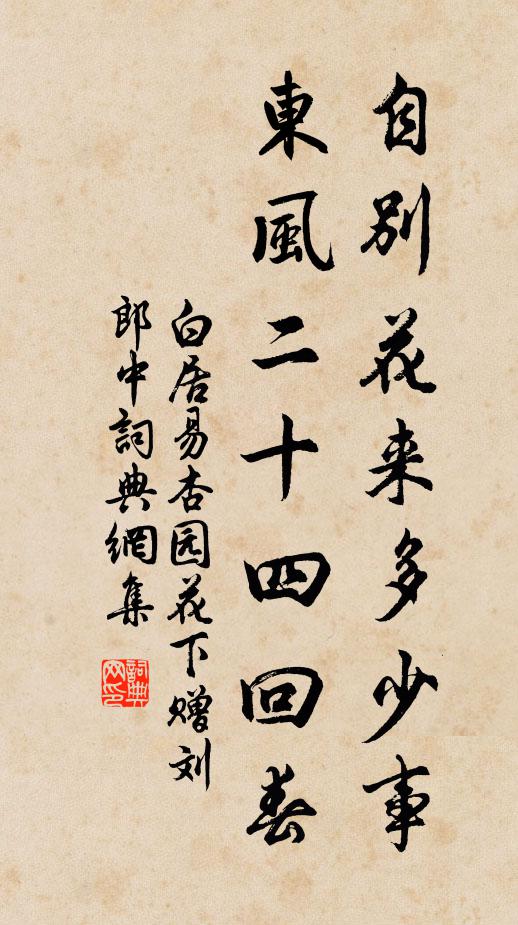 自別花来多少事
東風二十四回春
白居易杏园花下赠刘
郎中詞典網集
詞典
网印